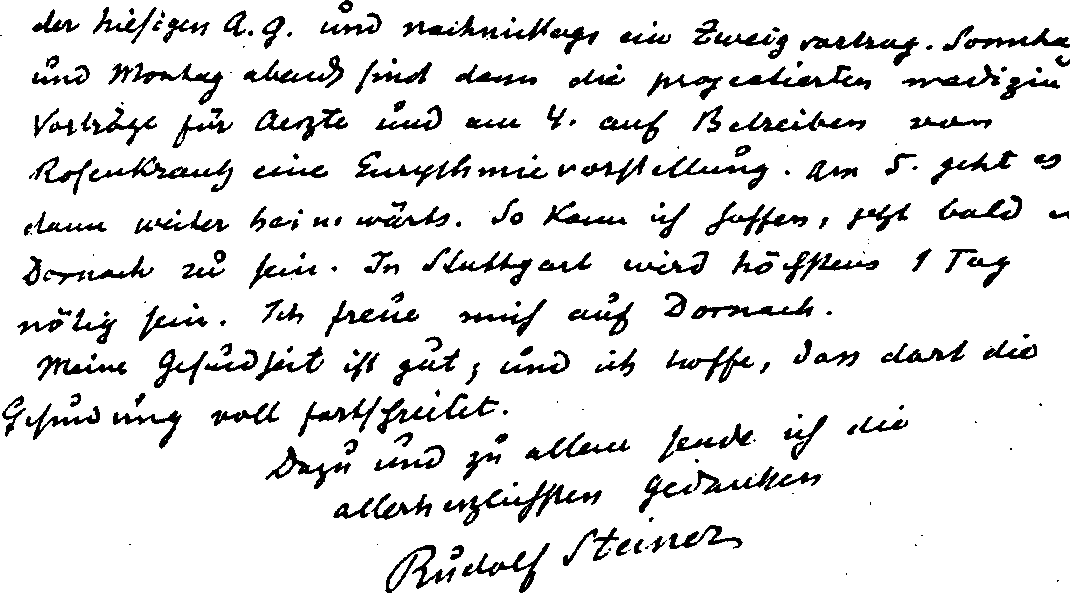 der hiesigen A. G. und nachmittags ein Zweigvortrag. Sonnta
und Montag abend sind dann die projectierten medizin
Vorträge für Aerzte und am 4. auf Betreiben von
Rosenkrantz eine Eurythmievorstellung. Am 5. geht es
dann weiter heimwärts. So kann ich hoffen, jetzt bald
Dornach zu sein. In Stuttgart wird höchstens 1 Tag
nötig sein. Ich freue mich auf Dornach.
Meine Gesundheit ist gut; und ich hoffe, dass dort die
Gesundung voll fortschreitet.
Dazu und zu allem sende ich die
allerherzlichsten Gedanken
Rudolf Steiner